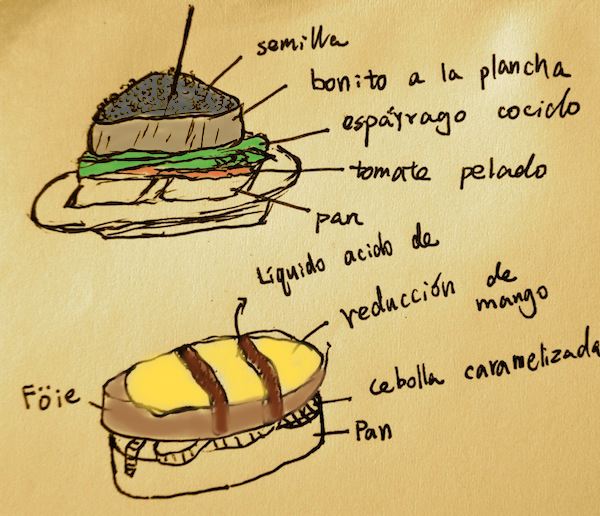 semilla
bonito a la plancha
espárrago cocido
tomate pelado
pan
Líquido acido de
reducción de
mango
cebolla caramelizada
Föie
Pan